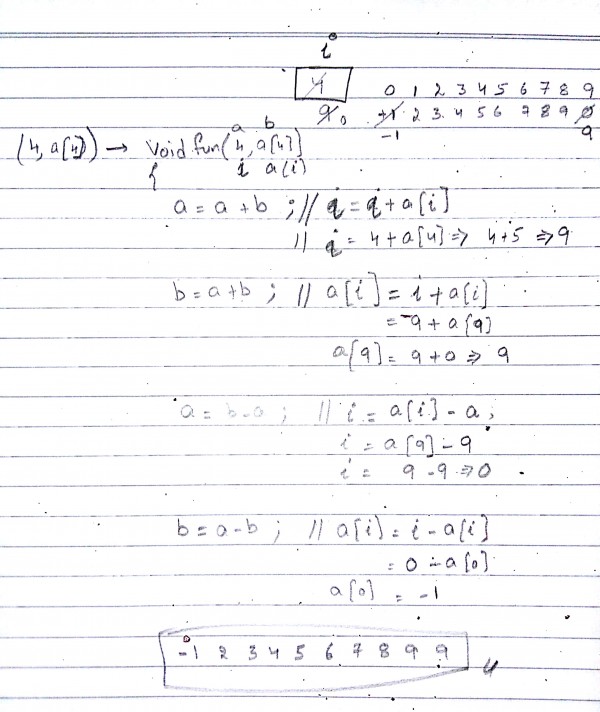 i
4
0 1 2 3 4 5 6 7 8 9
9 0 +1 2 3 4 5 6 7 8 9 0
-1 9
a b
(4, a[4]) → void fun(4, a[4])
i a(i)
{
a = a + b ; // i = i + a[i]
// i = 4 + a[4] ⇒ 4+5 ⇒ 9
b = a+b ; // a[i] = i + a[i]
= 9 + a[9]
a[9] = 9 + 0 ⇒ 9
a = b - a ; // i = a[i] - a ;
i = a[9] - 9
i = 9 - 9 ⇒ 0
b = a - b ; // a[i] = i - a[i]
= 0 - a[0]
a[0] = -1
-1 2 3 4 5 6 7 8 9 9